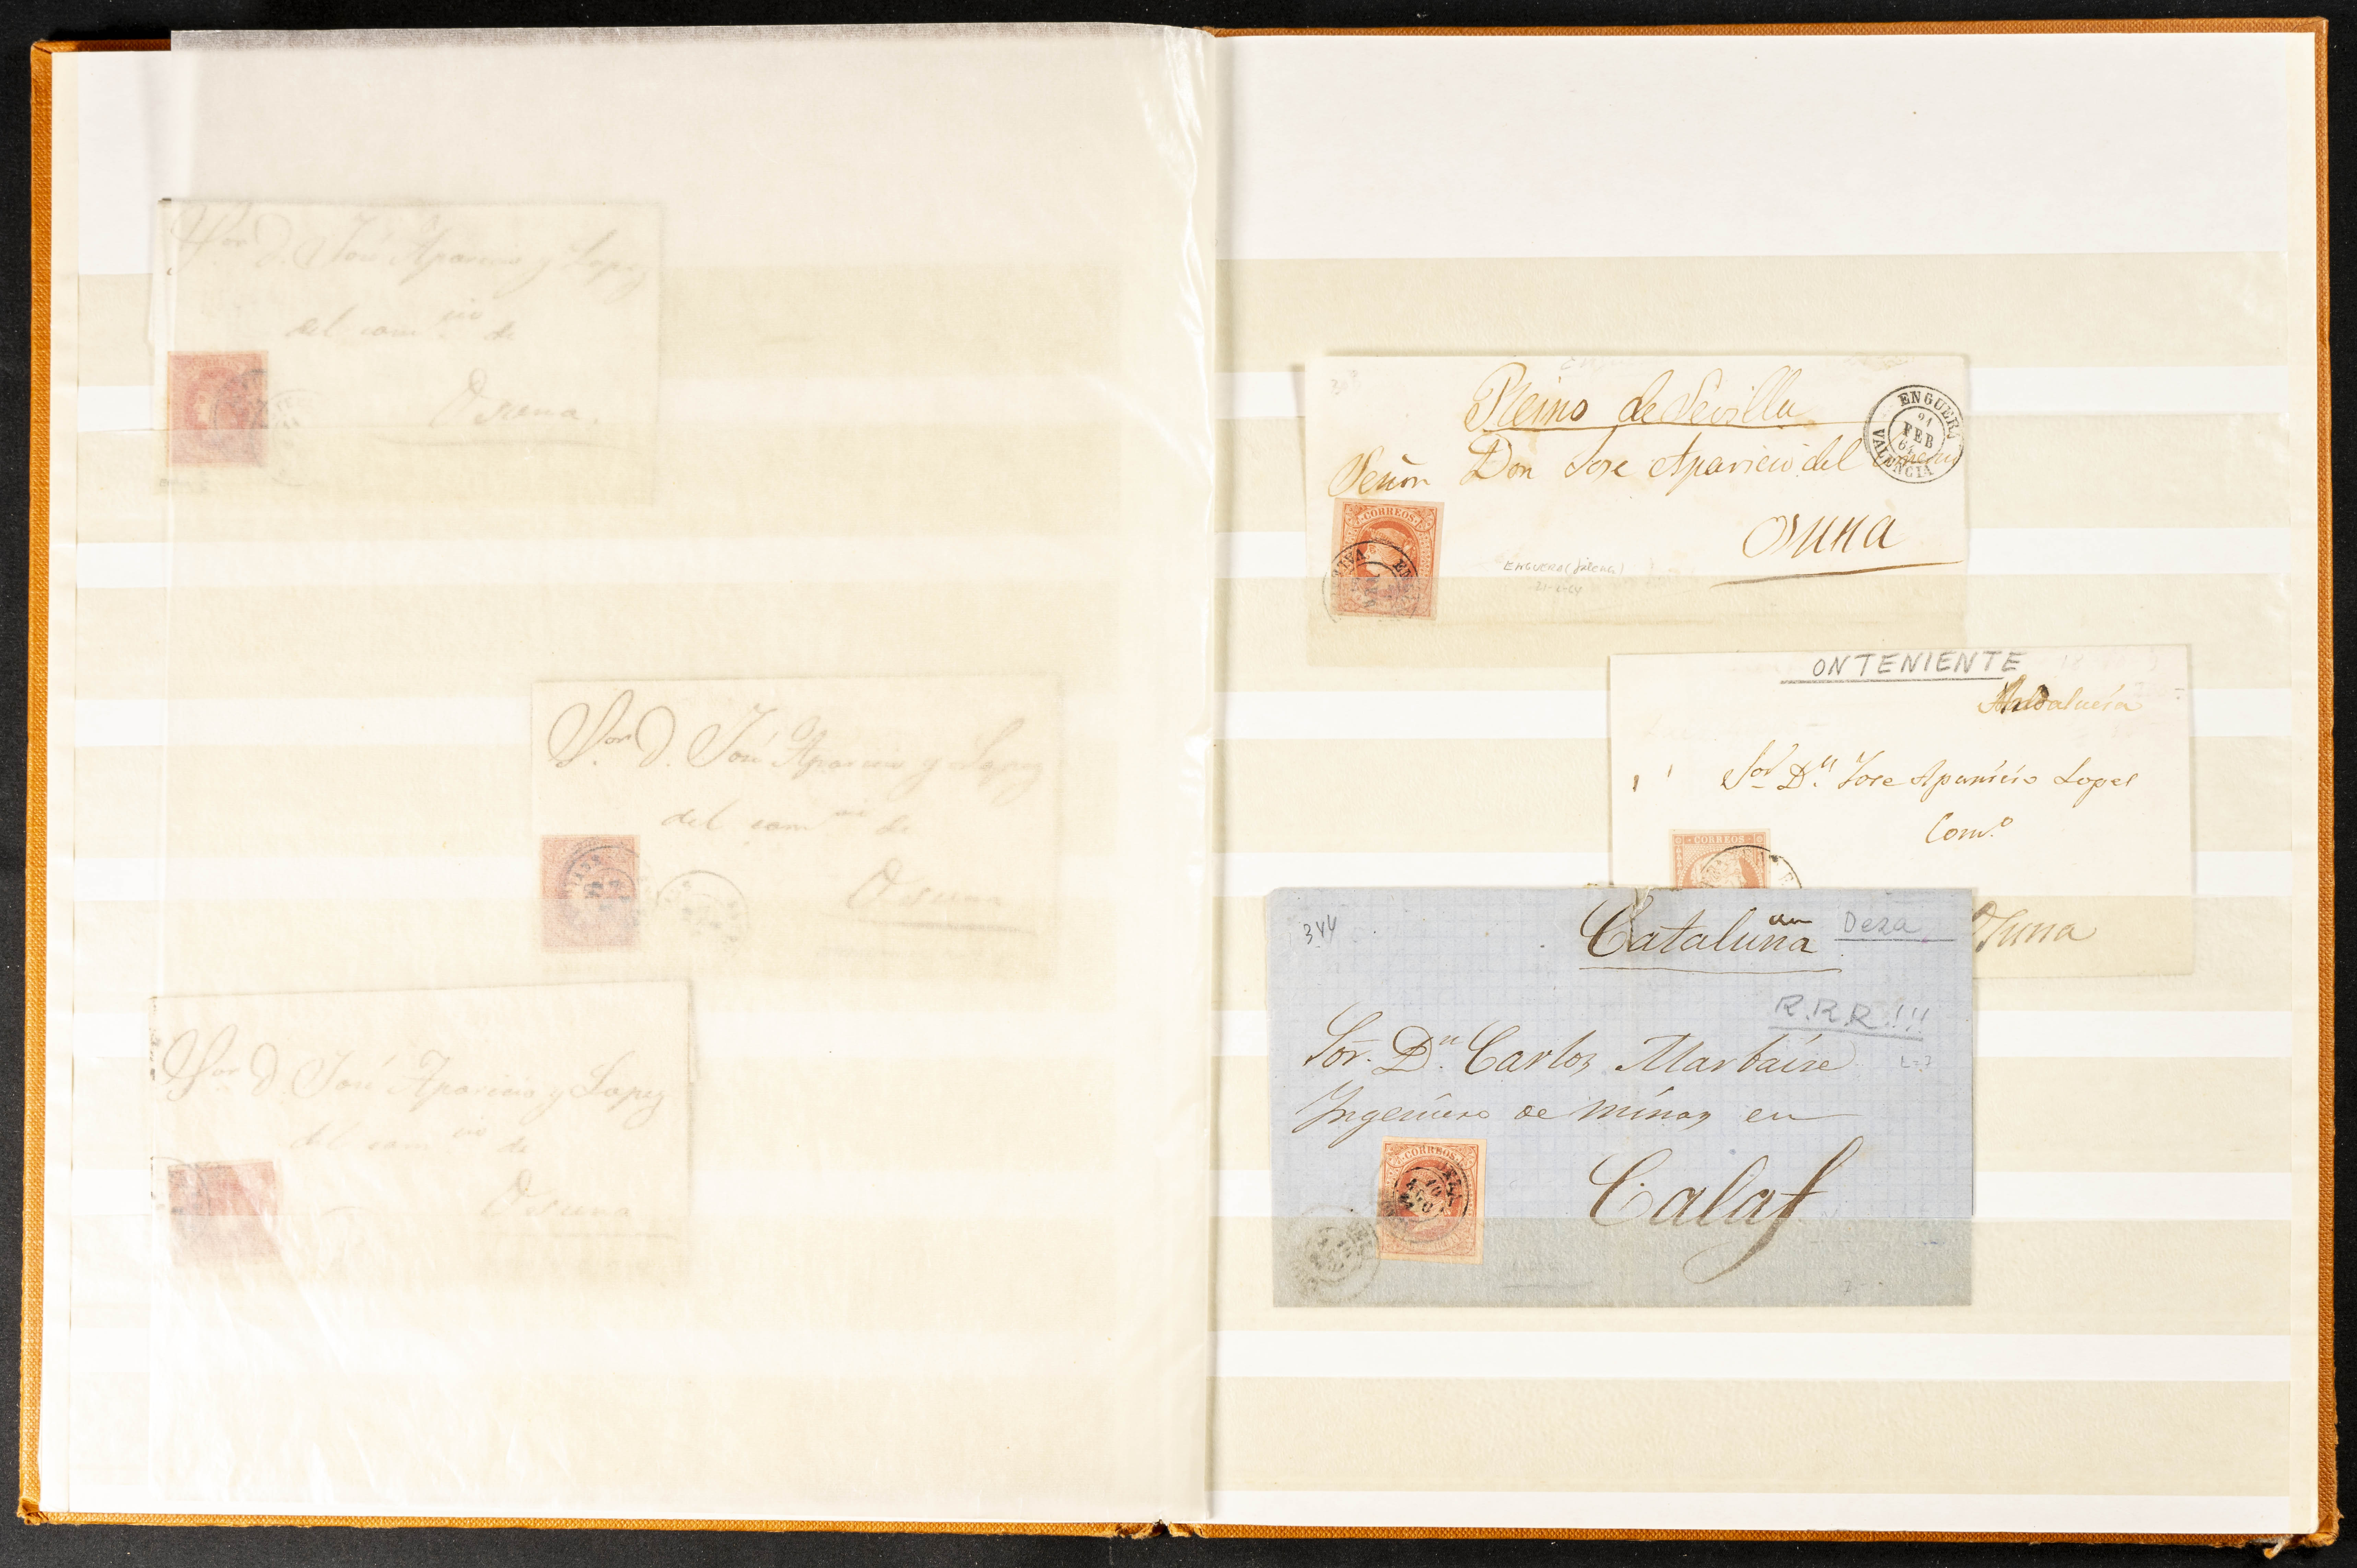 Sor D. José Aparicio y Lopez
del com cio de
Osuna.
Sor D. José Aparicio y Lopez
del com cio de
Osuna
Sor D. José Aparicio y Lopez
del com cio de
Osuna
Reino de Sevilla
ENGUERA
21
FEB
64
VALENCIA
Señor Don Jose Aparicio del
CORREOS
Osuna
ENGUERA (Valencia)
21-2-64
ONTENIENTE
Andalucía
Sor Dn. Jose Aparicio Lopes
Com.o
CORREOS
Osuna
344
Cataluña
Deza
R.R.R.!!!
Sor. Dn. Carlos Marbaise
Ingeniero de minas en
CORREOS
10
AGO
Calaf